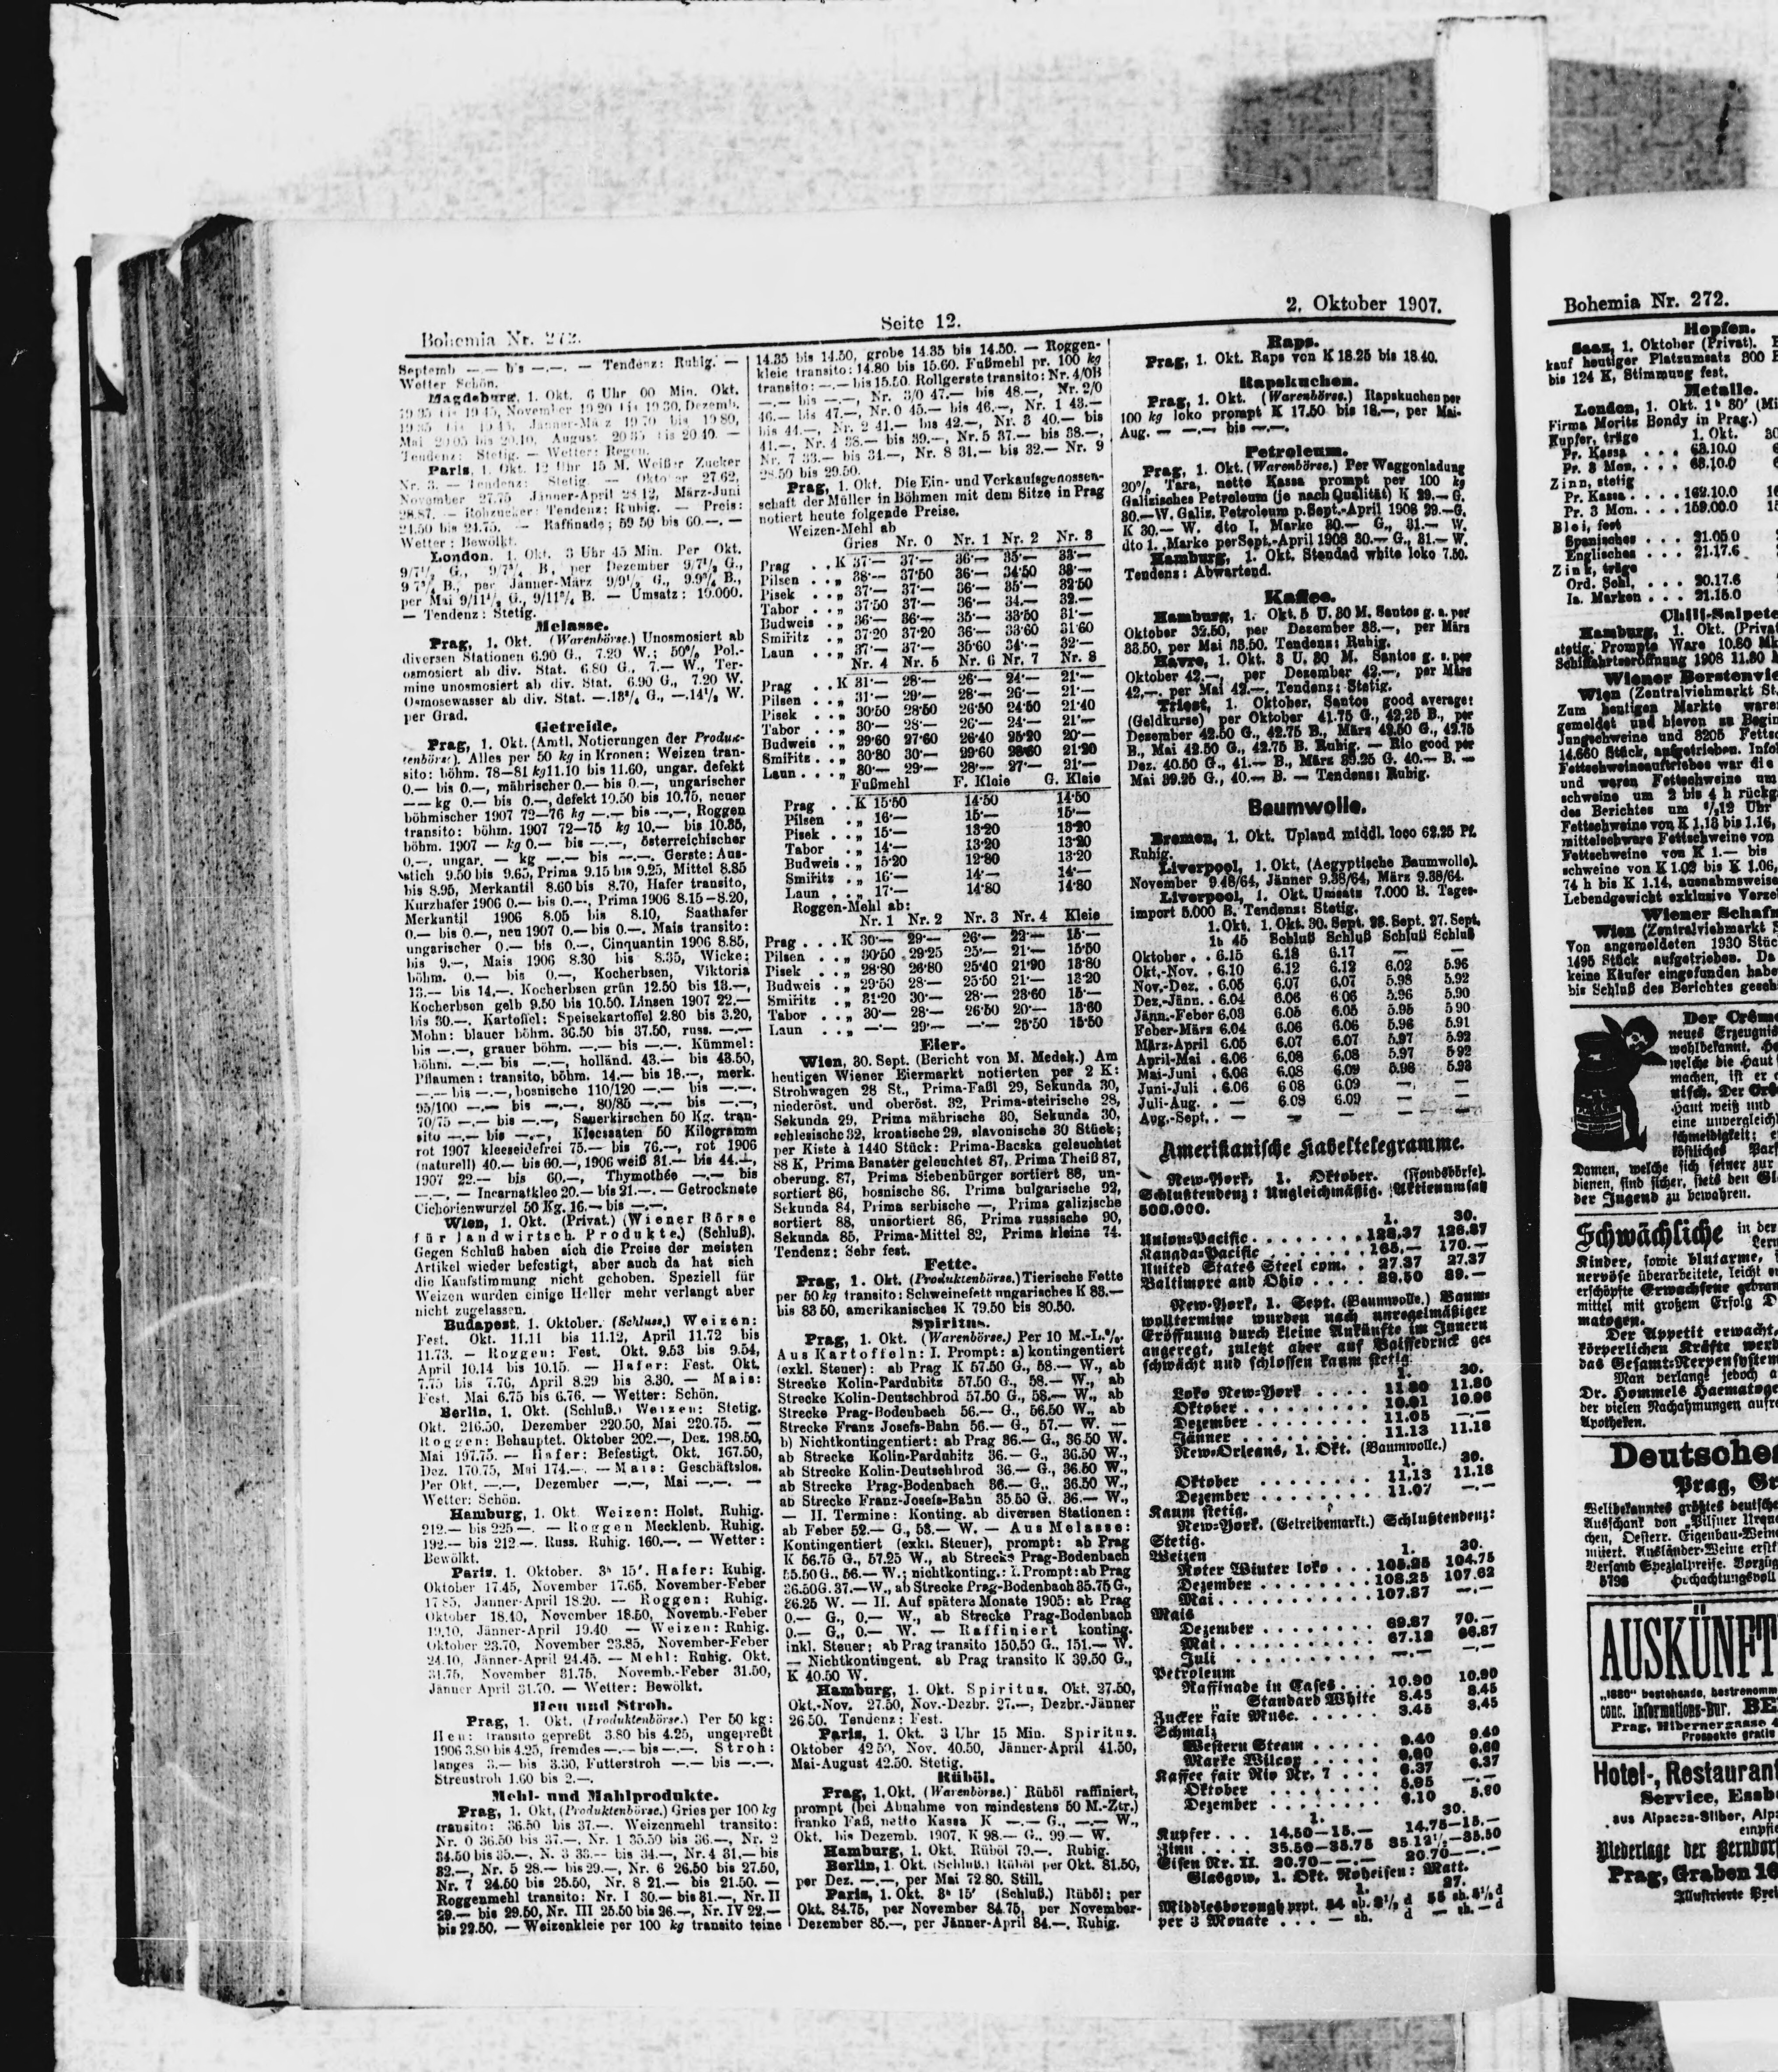 Bohemia Nr. 272.
Seite 12.
2. Oktober 1907.
Septemb —.— b's —.—. — Tendenz: Ruhig. —
Wetter Schön.
Magdeburg, 1. Okt. 6 Uhr 00 Min. Okt.
Tendenz: Stetig. — Wetter: Regen.
Paris, 1. Okt. 12 Uhr 15 M. Weißer Zucker
Nr. 3. — Tendenz: Stetig. — Oktober 27.62,
November 27.75 Jänner-April 28.12, März-Juni
28.87. — Rohzucker: Tendenz: Ruhig. — Preis:
24.50 bis 24.75. — Raffinade; 59 50 bis 60.—. —
Wetter: Bewölkt.
London, 1. Okt. 3 Uhr 45 Min. Per Okt.
per Mai 9/11¹/₂ G., 9/11³/₄ B. — Umsatz: 10.000.
— Tendenz: Stetig.
Melasse.
Prag, 1. Okt. (Warenbörse.) Unosmosiert ab
diversen Stationen 6.90 G., 7.20 W.; 50% Pol.-
osmosiert ab div. Stat. 6.80 G., 7.— W., Ter-
mine unosmosiert ab div. Stat. 6.90 G., 7.20 W.
Osmosewasser ab div. Stat. —.13³/₄ G., —.14¹/₂ W.
per Grad.
Getreide.
Prag, 1. Okt. (Amtl. Notierungen der Produk-
tenbörse). Alles per 50 kg in Kronen: Weizen tran-
sito: böhm. 78—81 kg 11.10 bis 11.60, ungar. defekt
0.— bis 0.—, mährischer 0.— bis 0.—, ungarischer
—— kg 0.— bis 0.—, defekt 10.50 bis 10.75, neuer
böhmischer 1907 72—76 kg —.— bis —.—, Roggen
transito: böhm. 1907 72—75 kg 10.— bis 10.35,
böhm. 1907 — kg 0.— bis —.—, österreichischer
0.—, ungar. — kg —.— bis —.—. Gerste: Aus-
stich 9.50 bis 9.65, Prima 9.15 bis 9.25, Mittel 8.85
bis 8.95, Merkantil 8.60 bis 8.70, Hafer transito,
Kurzhafer 1906 0.— bis 0.—, Prima 1906 8.15—8.20,
Merkantil 1906 8.05 bis 8.10, Saathafer
0.— bis 0.—, neu 1907 0.— bis 0.—. Mais transito:
ungarischer 0.— bis 0.—, Cinquantin 1906 8.85,
bis 9.—, Mais 1906 8.30 bis 8.35, Wicke:
böhm. 0.— bis 0.—, Kocherbsen, Viktoria
13.— bis 14.—. Kocherbsen grün 12.50 bis 13.—,
Kocherbsen gelb 9.50 bis 10.50. Linsen 1907 22.—
bis 30.—. Kartoffel: Speisekartoffel 2.80 bis 3.20,
Mohn: blauer böhm. 36.50 bis 37.50, russ. —.—
bis —.—, grauer böhm. —.— bis —.—. Kümmel:
böhm. —.— bis —.—, holländ. 43.— bis 43.50,
Pflaumen: transito, böhm. 14.— bis 18.—, merk.
—.— bis —.—, bosnische 110/120 —.— bis —.—.
95/100 —.— bis —.—, 80/85 —.— bis —.—,
70/75 —.— bis —.—, Sauerkirschen 50 Kg. tran-
sito —.— bis —.—, Kleesaaten 50 Kilogramm
rot 1907 kleeseidefrei 75.— bis 76.—, rot 1906
(naturell) 40.— bis 60.—, 1906 weiß 31.— bis 44.—,
1907 22.— bis 60.—, Thymothée —.— bis
—.—. — Incarnatklee 20.— bis 21.—. — Getrocknete
Cichorienwurzel 50 Kg. 16.— bis —.—.
Wien, 1. Okt. (Privat.) (Wiener Börse
für landwirtsch. Produkte.) (Schluß).
Gegen Schluß haben sich die Preise der meisten
Artikel wieder befestigt, aber auch da hat sich
die Kaufstimmung nicht gehoben. Speziell für
Weizen wurden einige Heller mehr verlangt aber
nicht zugelassen.
Budapest, 1. Oktober. (Schluss.) Weizen:
Fest. Okt. 11.11 bis 11.12, April 11.72 bis
11.73. — Roggen: Fest. Okt. 9.53 bis 9.54,
April 10.14 bis 10.15. — Hafer: Fest. Okt.
7.75 bis 7.76, April 8.29 bis 8.30. — Mais:
Fest. Mai 6.75 bis 6.76. — Wetter: Schön.
Berlin, 1. Okt. (Schluß.) Weizen: Stetig.
Okt. 216.50, Dezember 220.50, Mai 220.75. —
Roggen: Behauptet. Oktober 202.—, Dez. 198.50,
Mai 197.75. — Hafer: Befestigt. Okt. 167.50,
Dez. 170.75, Mai 174.—. — Mais: Geschäftslos.
Per Okt. —.—, Dezember —.—, Mai —.—. —
Wetter: Schön.
Hamburg, 1. Okt. Weizen: Holst. Ruhig.
212.— bis 225.—. — Roggen Mecklenb. Ruhig.
192.— bis 212.—. Russ. Ruhig. 160.—. — Wetter:
Bewölkt.
Paris, 1. Oktober. 3ʰ 15'. Hafer: Ruhig.
Oktober 17.45, November 17.65, November-Feber
17.85, Jänner-April 18.20. — Roggen: Ruhig.
Oktober 18.40, November 18.50, Novemb.-Feber
19.10, Jänner-April 19.40 — Weizen: Ruhig.
Oktober 23.70, November 23.85, November-Feber
24.10, Jänner-April 24.45. — Mehl: Ruhig. Okt.
31.75, November 31.75, Novemb.-Feber 31.50,
Jänner April 31.70. — Wetter: Bewölkt.
Heu und Stroh.
Prag, 1. Okt. (Produktenbörse.) Per 50 kg:
Heu: transito gepreßt 3.80 bis 4.25, ungepreßt
1906 3.80 bis 4.25, fremdes —.— bis —.—. Stroh:
langes 3.— bis 3.30, Futterstroh —.— bis —.—.
Streustroh 1.60 bis 2.—.
Mehl- und Mahlprodukte.
Prag, 1. Okt. (Produktenbörse.) Gries per 100 kg
transito: 36.50 bis 37.—. Weizenmehl transito:
Nr. 0 36.50 bis 37.—, Nr. 1 35.50 bis 36.—, Nr. 2
34.50 bis 35.—, N. 3 33.— bis 34.—, Nr. 4 31.— bis
32.—, Nr. 5 28.— bis 29.—, Nr. 6 26.50 bis 27.50,
Nr. 7 24.50 bis 25.50, Nr. 8 21.— bis 21.50. —
Roggenmehl transito: Nr. I 30.— bis 31.—, Nr. II
29.— bis 29.50, Nr. III 25.50 bis 26.—, Nr. IV 22.—
bis 22.50. — Weizenkleie per 100 kg transito feine
14.35 bis 14.50, grobe 14.35 bis 14.50. — Roggen-
kleie transito: 14.80 bis 15.60. Fußmehl pr. 100 kg
transito: —.— bis 15.50. Rollgerste transito: Nr. 4/0B
—.— bis —.—, Nr. 3/0 47.— bis 48.—, Nr. 2/0
46.— bis 47.—, Nr. 0 45.— bis 46.—, Nr. 1 43.—
bis 44.—, Nr. 2 41.— bis 42.—, Nr. 3 40.— bis
41.—, Nr. 4 38.— bis 39.—, Nr. 5 37.— bis 38.—,
Nr. 7 33.— bis 34.—, Nr. 8 31.— bis 32.— Nr. 9
28.50 bis 29.50.
Prag, 1. Okt. Die Ein- und Verkaufsgenossen-
schaft der Müller in Böhmen mit dem Sitze in Prag
notiert heute folgende Preise.
Weizen-Mehl ab
Gries Nr. 0 Nr. 1 Nr. 2 Nr. 3
Prag . . K 37·— 37·— 36·— 35·— 33·—
Pilsen . . „ 38·— 37·50 36·— 34·50 33·—
Pisek . . „ 37·— 37·— 36·— 35·— 32·50
Tabor . . „ 37·50 37·— 36·— 34.— 32.—
Budweis . „ 36·— 36·— 35·— 33·50 31·—
Smiřitz . „ 37·20 37·20 36·— 33·60 31·60
Laun . . „ 37·— 37·— 35·60 34·— 32·—
Nr. 4 Nr. 5 Nr. 6 Nr. 7 Nr. 8
Prag . . K 31·— 28·— 26·— 24·— 21·—
Pilsen . . „ 31·— 29·— 28·— 26·— 21·—
Pisek . . „ 30·50 28·50 26·50 24·50 21·40
Tabor . . „ 30·— 28·— 26·— 24·— 21·—
Budweis . „ 29·60 27·60 26·40 25·20 20·—
Smiřitz . . „ 30·80 30·— 29·60 28·60 21·20
Laun . . . „ 30·— 29·— 28·— 27·— 21·—
Fußmehl F. Kleie G. Kleie
Prag . . K 15·50 14·50 14·50
Pilsen . „ 16·— 15·— 15·—
Pisek . . „ 15·— 13·20 13·20
Tabor . „ 14·— 13·20 13·20
Budweis . „ 15·20 12·80 13·20
Smiřitz . „ 16·— 14·— 14·—
Laun . . „ 17·— 14·80 14·80
Roggen-Mehl ab:
Nr. 1 Nr. 2 Nr. 3 Nr. 4 Kleie
Prag . . . K 30·— 29·— 26·— 22·— 15·—
Pilsen . . „ 30·50 29·25 25·— 21·— 15·50
Pisek . . „ 28·80 26·80 25·40 21·90 13·80
Budweis . „ 29·50 28·— 25·50 21·— 13·20
Smiřitz . „ 31·20 30·— 28·— 23·60 15·—
Tabor . . „ 30·— 28·— 26·50 20·— 13·60
Laun . . „ —·— 29·— —·— 25·50 15·50
Eier.
Wien, 30. Sept. (Bericht von M. Medak.) Am
heutigen Wiener Eiermarkt notierten per 2 K:
Strohwagen 28 St., Prima-Faßl 29, Sekunda 30,
niederöst. und oberöst. 32, Prima-steirische 28,
Sekunda 29, Prima mährische 30, Sekunda 30,
schlesische 32, kroatische 29, slavonische 30 Stück;
per Kiste à 1440 Stück: Prima-Bacska geleuchtet
88 K, Prima Banater geleuchtet 87, Prima Theiß 87,
oberung. 87, Prima Siebenbürger sortiert 88, un-
sortiert 86, bosnische 86, Prima bulgarische 92,
Sekunda 84, Prima serbische —, Prima galizische
sortiert 88, unsortiert 86, Prima russische 90,
Sekunda 85, Prima-Mittel 82, Prima kleine 74.
Tendenz: Sehr fest.
Fette.
Prag, 1. Okt. (Produktenbörse.) Tierische Fette
per 50 kg transito: Schweinefett ungarisches K 83.—
bis 83 50, amerikanisches K 79.50 bis 80.50.
Spiritus.
Prag, 1. Okt. (Warenbörse.) Per 10 M.-L.%.
Aus Kartoffeln: I. Prompt: a) kontingentiert
(exkl. Steuer): ab Prag K 57.50 G., 58.— W., ab
Strecke Kolin-Pardubitz 57.50 G., 58.— W., ab
Strecke Kolin-Deutschbrod 57.50 G., 58.— W., ab
Strecke Prag-Bodenbach 56.— G., 56.50 W., ab
Strecke Franz Josefs-Bahn 56.— G., 57.— W. —
b) Nichtkontingentiert: ab Prag 36.— G., 36.50 W.
ab Strecke Kolin-Pardubitz 36.— G., 36.50 W.,
ab Strecke Kolin-Deutschbrod 36.— G., 36.50 W.,
ab Strecke Prag-Bodenbach 36.— G., 36.50 W.,
ab Strecke Franz-Josefs-Bahn 35.50 G. 36.— W.,
— II. Termine: Konting. ab diversen Stationen:
ab Feber 52.— G., 53.— W. — Aus Melasse:
Kontingentiert (exkl. Steuer), prompt: ab Prag
K 56.75 G., 57.25 W., ab Strecke Prag-Bodenbach
55.50 G., 56.— W.; nichtkonting.: I. Prompt: ab Prag
36.50 G. 37.— W., ab Strecke Prag-Bodenbach 35.75 G.,
36.25 W. — II. Auf spätere Monate 1905: ab Prag
0.— G., 0.— W., ab Strecke Prag-Bodenbach
0.— G., 0.— W. — Raffiniert konting.
inkl. Steuer; ab Prag transito 150.50 G., 151.— W.
— Nichtkontingent. ab Prag transito K 39.50 G.,
K 40.50 W.
Hamburg, 1. Okt. Spiritus. Okt. 27.50,
Okt.-Nov. 27.50, Nov.-Dezbr. 27.—, Dezbr.-Jänner
26.50. Tendenz: Fest.
Paris, 1. Okt. 3 Uhr 15 Min. Spiritus.
Oktober 42 50, Nov. 40.50, Jänner-April 41.50,
Mai-August 42.50. Stetig.
Rüböl.
Prag, 1. Okt. (Warenbörse.) Rüböl raffiniert,
prompt (bei Abnahme von mindestens 50 M.-Ztr.)
franko Faß, netto Kassa K —.— G., —.— W.,
Okt. bis Dezemb. 1907. K 98.— G.. 99.— W.
Hamburg, 1. Okt. Rüböl 79.—. Ruhig.
Berlin, 1. Okt. (Schluß.) Rüböl per Okt. 81.50,
per Dez. —.—, per Mai 72.80. Still.
Paris, 1. Okt. 3ʰ 15' (Schluß.) Rüböl: per
Okt. 84.75, per November 84.75, per November-
Dezember 85.—, per Jänner-April 84.—, Ruhig.
Raps.
Prag, 1. Okt. Raps von K 18.25 bis 18.40.
Rapskuchen.
Prag, 1. Okt. (Warenbörse.) Rapskuchen per
100 kg loko prompt K 17.50 bis 18.—, per Mai-
Aug. — —.— bis —.—.
Petroleum.
Prag, 1. Okt. (Warenbörse.) Per Waggonladung
20% Tara, netto Kassa prompt per 100 kg
Galizisches Petroleum (je nach Qualität) K 29.— G.
30.—W. Galiz. Petroleum p. Sept.-April 1908 29.—G.
K 30.— W. dto I. Marke 30.— G., 31.— W.
dto 1. Marke per Sept.-April 1908 30.— G., 31.— W.
Hamburg, 1. Okt. Standad white loko 7.50.
Tendenz: Abwartend.
Kaffee.
Hamburg, 1. Okt. 5 U. 30 M. Santos g. a. per
Oktober 32.50, per Dezember 33.—, per März
33.50, per Mai 33.50. Tendenz: Ruhig.
Havre, 1. Okt. 3 U. 30 M. Santos g. a. per
Oktober 42.—, per Dezember 42.—, per März
42.—. per Mai 42.—. Tendenz: Stetig.
Triest, 1. Oktober, Santos good average:
(Geldkurse) per Oktober 41.75 G., 42.25 B., per
Dezember 42.50 G., 42.75 B., März 42.50 G., 42.75
B., Mai 42.50 G., 42.75 B. Ruhig. — Rio good per
Dez. 40.50 G., 41.— B., März 39.25 G. 40.— B. —
Mai 39.25 G., 40.— B. — Tendenz: Ruhig.
Baumwolle.
Bremen, 1. Okt. Upland middl. loco 62.25 Pf.
Ruhig.
Liverpool, 1. Okt. (Aegyptische Baumwolle).
November 9.48/64, Jänner 9.38/64, März 9.38/64.
Liverpool, 1. Okt. Umsatz 7.000 B. Tages-
import 5.000 B. Tendenz: Stetig.
1. Okt. 1. Okt. 30. Sept. 28. Sept. 27. Sept.
1h 45 Schluß Schluß Schluß Schluß
Oktober . . 6.15 6.18 6.17 — —
Okt.-Nov. . 6.10 6.12 6.12 6.02 5.96
Nov.-Dez. . 6.05 6.07 6.07 5.98 5.92
Dez.-Jänn. . 6.04 6.06 6.06 5.96 5.90
Jänn.-Feber 6.03 6.05 6.05 5.95 5 90
Feber-März 6.04 6.06 6.06 5.96 5.91
März-April 6.05 6.07 6.07 5.97 5.92
April-Mai . 6.06 6.08 6.08 5.97 5 92
Mai-Juni . 6.06 6.08 6.09 5.98 5.93
Juni-Juli . 6.06 6 08 6.09 — —
Juli-Aug. . — 6.08 6.09 — —
Aug.-Sept. . — — — — —
Amerikanische Kabeltelegramme.
New-York, 1. Oktober. (Fondsbörse).
Schlußtendenz: Ungleichmäßig. Aktienumsatz
500.000.
1. 30.
Union-Pacific . . . . . . . 128.37 126.87
Kanada-Pacific . . . . . . . 165.— 170.—
United States Steel com. . 27.37 27.37
Baltimore and Ohio . . . . 89.50 89.—
New-York, 1. Sept. (Baumwolle.) Baum-
wolltermine wurden nach unregelmäßiger
Eröffnung durch kleine Ankünfte im Innern
angeregt, zuletzt aber auf Baissedruck ge-
schwächt und schlossen kaum stetig.
1. 30.
Loko New-York . . . . 11.80 11.80
Oktober . . . . . . . . 10.91 10.96
Dezember . . . . . . . 11.05 —.—
Jänner . . . . . . . . 11.13 11.18
New-Orleans, 1. Okt. (Baumwolle.)
1. 30.
Oktober . . . . . . . . 11.13 11.18
Dezember . . . . . . . 11.07 —.—
Kaum stetig.
New-York. (Getreidemarkt.) Schlußtendenz:
Stetig.
Weizen 1. 30.
Roter Winter loko . . . 105.25 104.75
Dezember . . . . . . . 108.25 107.62
Mai . . . . . . . . . . 107.87 —.—
Mais
Dezember . . . . . . . 69.87 70.—
Mai . . . . . . . . . . 67.12 66.87
Juli . . . . . . . . . . —.— —.—
Petroleum
Raffinade in Cases . . . 10.90 10.90
„ Standard White 8.45 8.45
Zucker fair Musc. . . . . . 3.45 3.45
Schmalz
Western Steam . . . . . 9.40 9.40
Marke Wilcox . . . . . 9.60 9.60
Kaffee fair Rio Nr. 7 . . . 6.37 6.37
Oktober . . . . . . . . 5.95 —.—
Dezember . . . . . . . 6.10 5.80
1. 30.
Kupfer . . . 14.50—15.— 14.75—15.—
Zinn . . . 35.50—35.75 35.12¹/₂—35.50
Eisen Nr. II. 20.70—.— 20.70—.—
Glasgow, 1. Okt. Roheisen: Matt.
1. 27.
Middlesborough prpt. 54 sh. 2¹/₂ d 55 sh. 3¹/₂ d
per 3 Monate . . . — sh. d — sh. — d
Bohemia Nr. 272.
Hopfen.
Saaz, 1. Oktober (Privat).
kauf heutiger Platzumsatz 300
bis 124 K, Stimmung fest.
Metalle.
London, 1. Okt. 1ʰ 30' (Mi
Firma Moritz Bondy in Prag.)
Kupfer, träge 1. Okt. 30
Pr. Kassa . . . 68.10.0
Pr. 3 Mon. . . . 68.10.0
Zinn, stetig
Pr. Kassa . . . . 162.10.0
Pr. 3 Mon. . . . 159.00.0
Blei, fest
Spanisches . . . 21.05.0
Englisches . . . 21.17.6
Zink, träge
Ord. Schl. . . . 20.17.6
Ia. Marken . . . 21.15.0
Chili-Salpete
Hamburg, 1. Okt. (Privat
stetig. Prompte Ware 10.80 Mk
Schiffahrtseröffnung 1908 11.30
Wiener Borstenvie
Wien (Zentralviehmarkt St.
Zum heutigen Markte ware
gemeldet und hievon zu Begin
Jungschweine und 8205 Fettsc
14.650 Stück, aufgetrieben. Infol
Fettschweineauftriebes war die
und waren Fettschweine um
schweine um 2 bis 4 h rückg
des Berichtes um ¹/₂12 Uhr
Fettschweine von K 1.13 bis 1.16,
mittelschwere Fettschweine von
Fettschweine von K 1.— bis
schweine von K 1.02 bis K 1.06,
74 h bis K 1.14, ausnahmsweise
Lebendgewicht exklusive Verze
Wiener Schafm
Wien (Zentralviehmarkt
Von angemeldeten 1930 Stüc
1495 Stück aufgetrieben. Da
keine Käufer eingefunden habe
bis Schluß des Berichtes gesch
Der Crême
neues Erzeugnis
wohlbekannt.
welche die Haut
machen, ist er
nisch. Der Crê
Haut weiß und
eine unvergleich
schmeidigkeit;
köstliches Parf
Damen, welche sich seiner zur
bienen, sind sicher, stets den Gl
der Jugend zu bewahren.
Schwächliche in der
Kinder, sowie blutarme,
nervöse überarbeitete, leicht
erschöpfte Erwachsene gebrau
mittel mit großem Erfolg D
matogen.
Der Appetit erwacht,
körperlichen Kräfte werd
das Gesamt-Nervensystem
Man verlange jedoch a
Dr. Hommels Haematoge
der vielen Nachahmungen
Apotheken.
Deutsches
Prag, Gr
Weltbekanntes größtes deutsche
Ausschank von Pilsner Urque
chen, Oesterr. Eigenbau-Weine
Ausländer-Weine
Versand Spezialpreise. Vorzüg
5798 Hochachtungsvoll
AUSKÜNFT
„1880" bestehende, bestrenomm
conc. Informations-Bur. BE
Prag, Hibernergasse 4
Prospekte gratis
Hotel-, Restaurant
Service, Essb
aus Alpacca-Silber, Alp
empfie
Niederlage der Berndorf
Prag, Graben 16
Illustrierte Prei